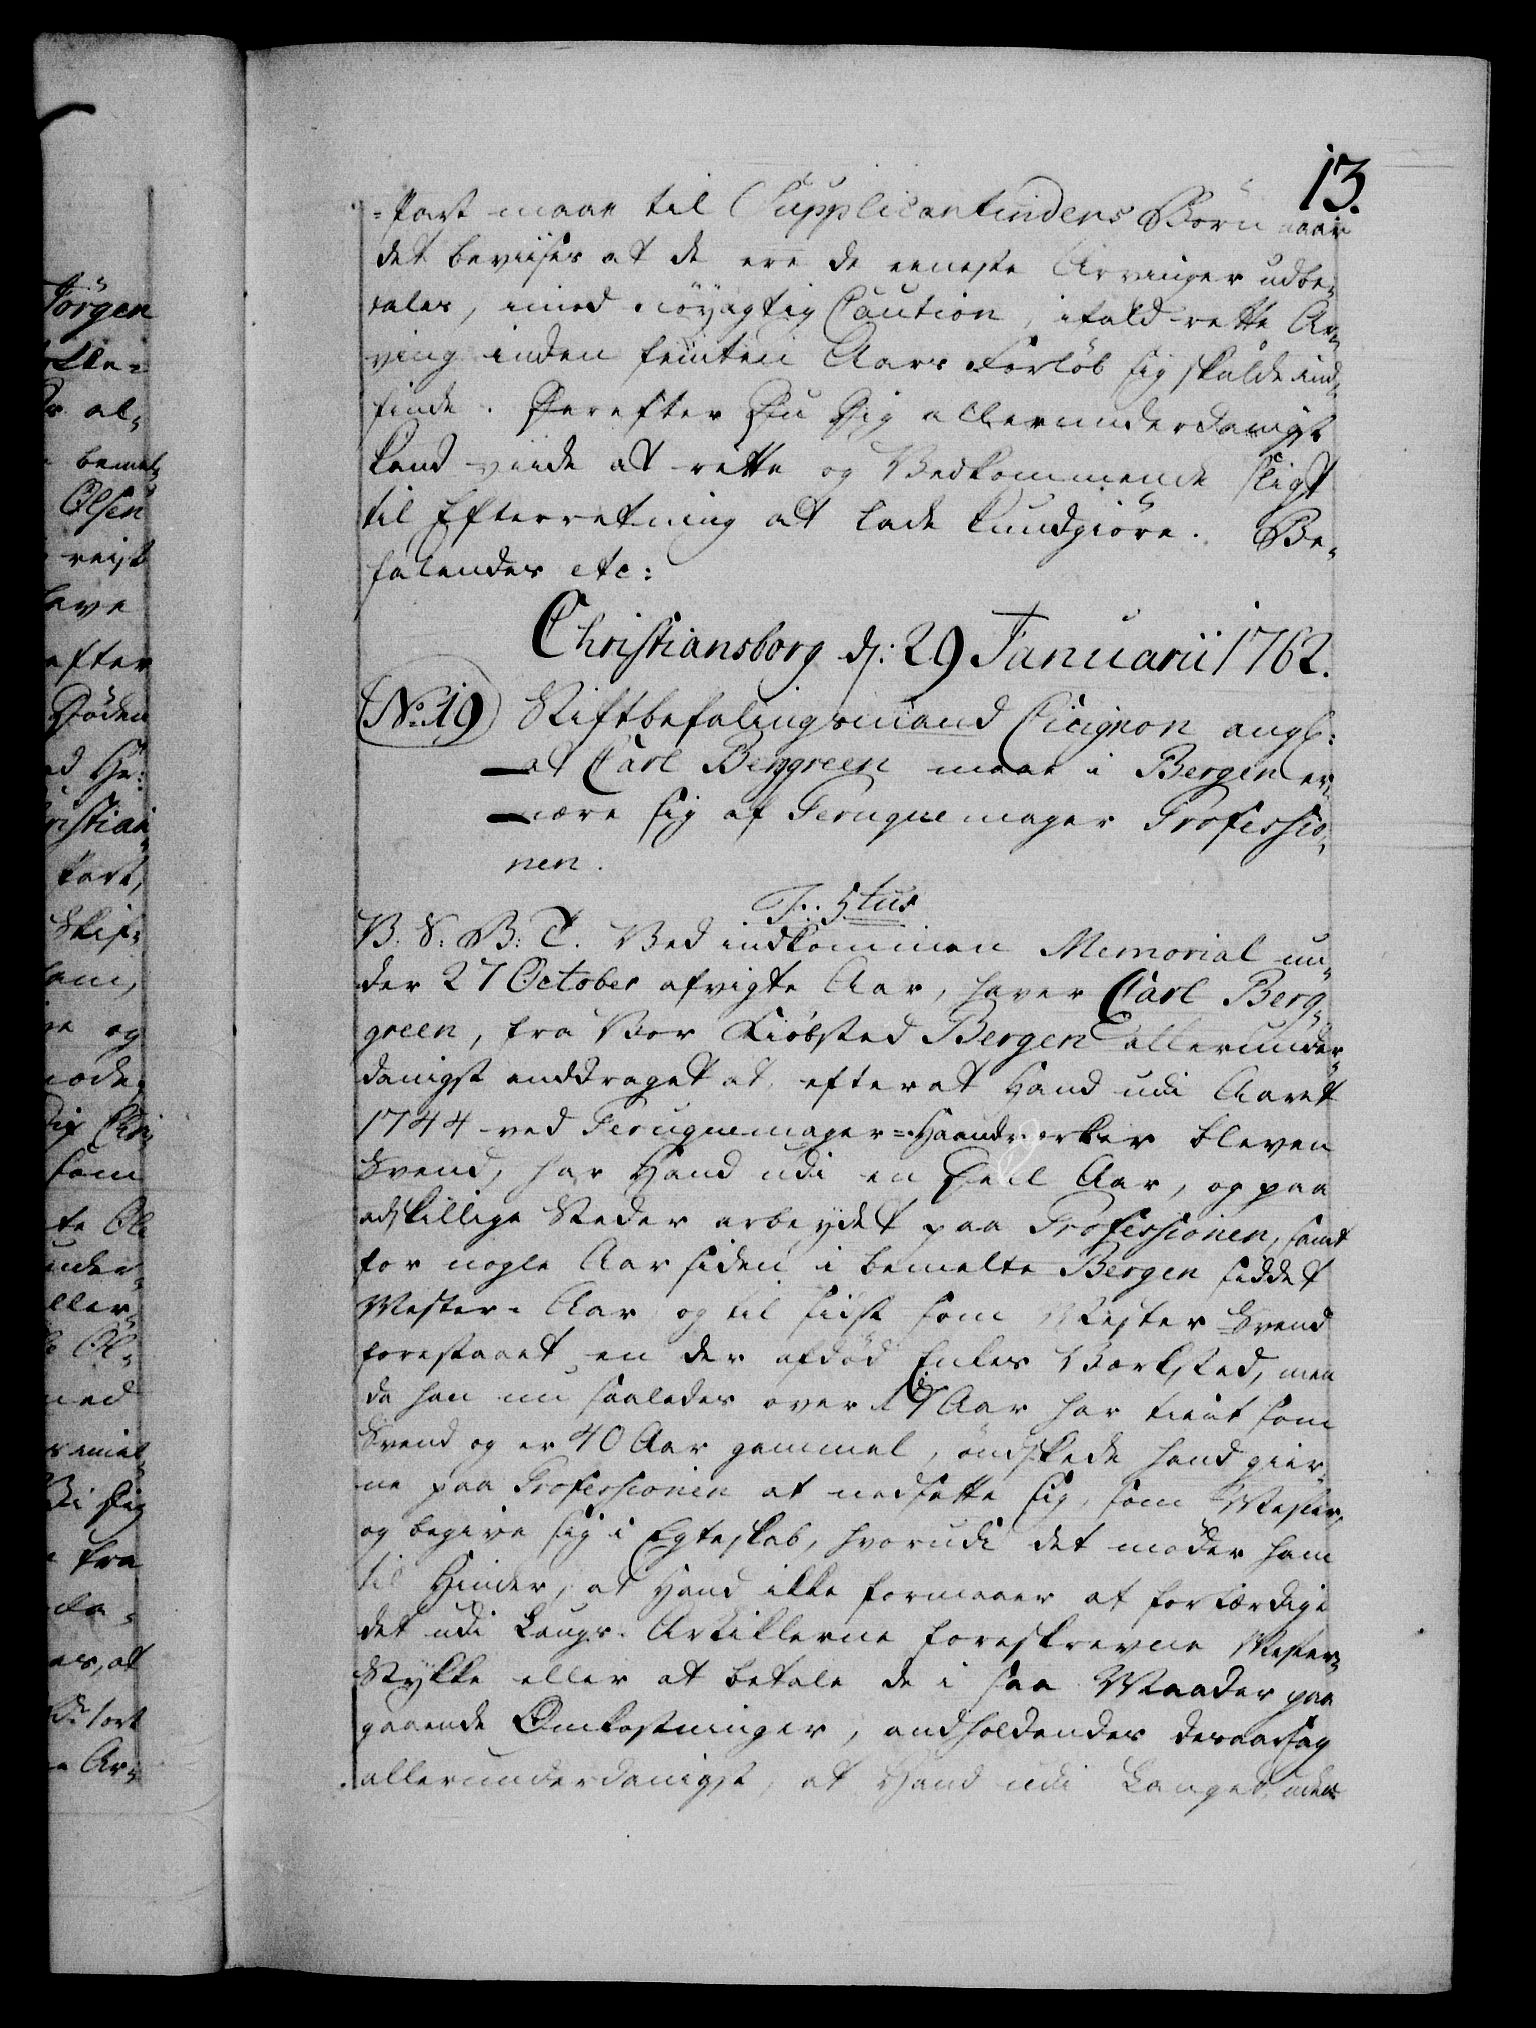 13.
-Part maae til Supplicantindens Börn naar
det beviises at de ere de eeneste Arvinger udbe-
tales, imod nöyagtig Caution, ifald rette Ar-
ving inden femten Aars Forlöb sig skulde ind-
finde. Derefter Du Dig allerunderdanigst
kand viide at rette og Vedkommende sligt
til Efterretning at lade kundgiöre. Be-
falendes etc:
Christiansborg d: 29 Januarii 1762.
No: 19 Stiftbefalingsmand Cicignon angl:
at Carl Berggreen maae i Bergen er-
nære sig af Peruquemager Professio-
nen.
F: 5tus
V: S: B: T. Ved indkommen Memorial un-
der 27 October afvigte Aar, haver Carl Berg-
green, fra Vor Kiöbsted Bergen allerunder-
danigst anddraget at, efter at Hand udi Aaret
1744 ved Peruquemager-Haandverket bleven
Svend, har Hand udi en Deel Aar, og paa
adskillige Steder arbeydet paa Professionen, samt
for nogle Aar siden i bemelte Bergen siddet
Mester-Aar, og til sidst som Mester Svend
forestaaet en der afdöd Enkes Værksted, men
da han nu saaledes over 17 Aar har tient som
Svend og er 40 Aar gammel, öndskede hand gier-
ne paa Professionen at nedsætte sig, som Mester,
og begive sig i Egteskab, hvorudi det möder ham
til Hinder, at Hand ikke formaaer at forfærdige
det udi Laugs-Artiklerne foreskrevne Mester-
Stykke eller at betale de i saa Maader paa
gaaende Omkostninger, andholdendes desaarsag
allerunderdanigst, at Hand udi Lauget, uden
Jörgen
al-
bemel-
Olsen
reist
have
efter
Döden
ristian
Skif-
og
som
under-
aller-
med
Vi Dig
fra
es, at
Ar-